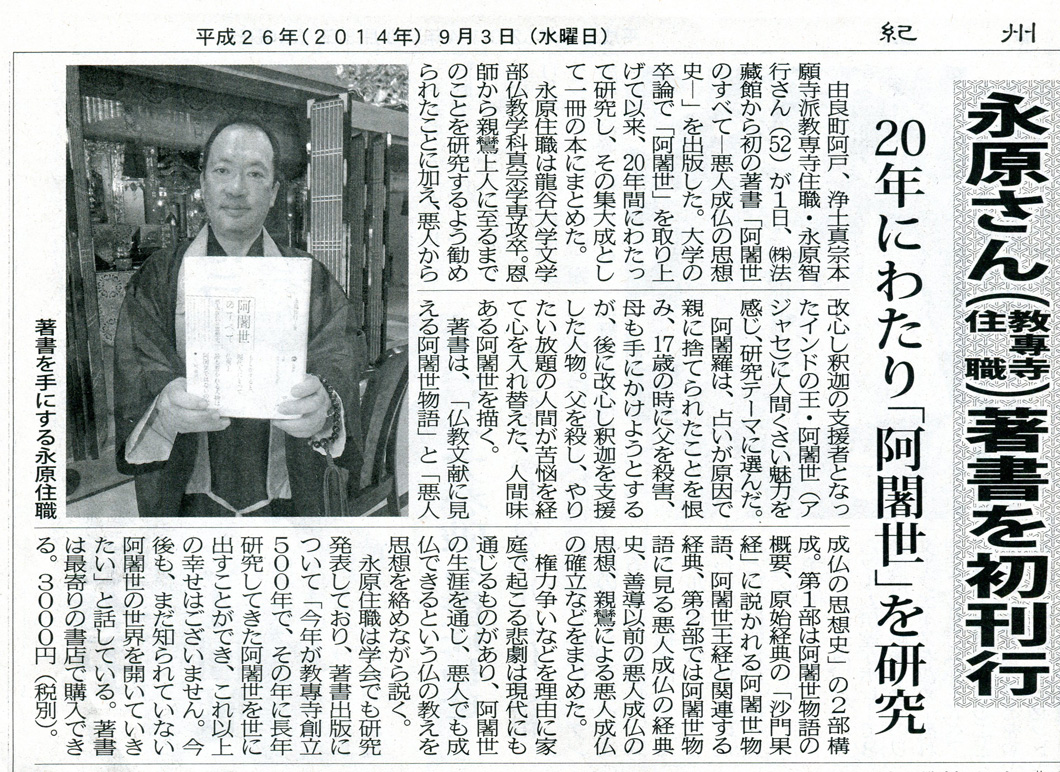 平成26年(2014年) 9月3日 (水曜日)
紀州
永原さん(教専寺住職)著書を初刊行
20年にわたり「阿闍世」を研究
由良町阿戸、浄土真宗本
願寺派教専寺住職・永原智
行さん(52)が1日、㈱法
藏館から初の著書「阿闍世
のすべて―悪人成仏の思想
史―」を出版した。大学の
卒論で「阿闍世」を取り上
げて以来、20年間にわたっ
て研究し、その集大成とし
て一冊の本にまとめた。
永原住職は龍谷大学文学
部仏教学科真宗学専攻卒。恩
師から親鸞上人に至るまで
のことを研究するよう勧め
られたことに加え、悪人から
改心し釈迦の支援者となっ
たインドの王・阿闍世(ア
ジャセ)に人間くさい魅力を
感じ、研究テーマに選んだ。
阿闍羅は、占いが原因で
親に捨てられたことを恨
み、17歳の時に父を殺害、
母も手にかけようとする
が、後に改心し釈迦を支援
した人物。父を殺し、やり
たい放題の人間が苦悩を経
て心を入れ替えた、人間味
ある阿闍世を描く。
著書は、「仏教文献に見
える阿闍世物語」と「悪人
成仏の思想史」の2部構
成。第1部は阿闍世物語の
概要、原始経典の「沙門果
経」に説かれる阿闍世物
語、阿闍世王経と関連する
経典、第2部では阿闍世物
語に見る悪人成仏の経典
史、善導以前の悪人成仏の
思想、親鸞による悪人成仏
の確立などをまとめた。
権力争いなどを理由に家
庭で起こる悲劇は現代にも
通じるものがあり、阿闍世
の生涯を通じ、悪人でも成
仏できるという仏の教えを
思想を絡めながら説く。
永原住職は学会でも研究
発表しており、著書出版に
ついて「今年が教専寺創立
500年で、その年に長年
研究してきた阿闍世を世に
出すことができ、これ以上
の幸せはございません。今
後も、まだ知られていない
阿闍世の世界を開いていき
たい」と話している。著書
は最寄りの書店で購入でき
る。3000円(税別)。
著書を手にする永原住職
阿闍世
のすべて